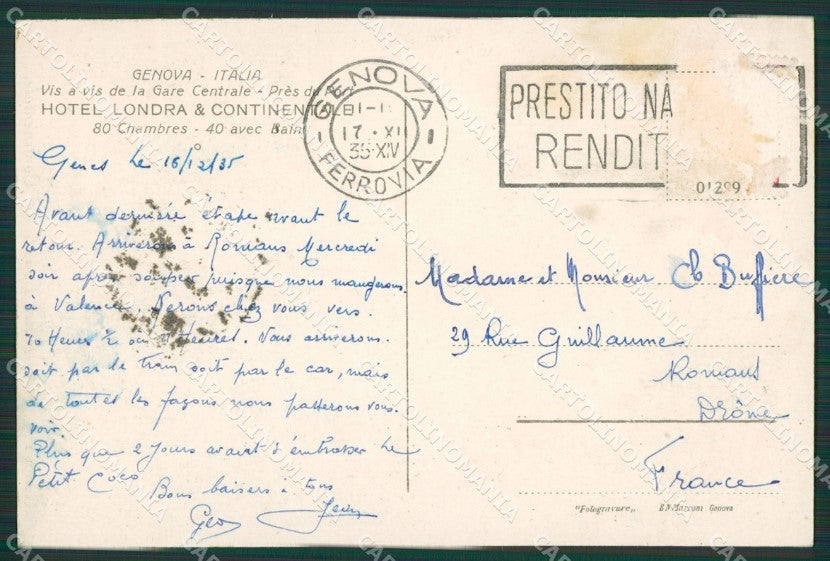 GENOVA - ITALIA
Vis a vis de la Gare Centrale - Près du Port
HOTEL LONDRA & CONTINENTALE
80 Chambres - 40 avec Bain
GENOVA
17 · XII
35·XIV
FERROVIA
PRESTITO NA
RENDIT
01299
Genes le 16/12/35
Avant dernière étape avant le
retour. Arriverons à Romans Mercredi
soir après souper puisque nous mangerons
à Valence. Serons chez vous vers
10 Heures ½ ou Heures. Nous arriverons
soit par le train soit par le car, mais
de toutes les façons nous passerons vous
voir.
Plus que 2 jours avant d'embrasser le
Petit Coco
Bons baisers à tous
Geo Jean
Madame et Monsieur Ch Buffière
29 Rue Guillaume
Romans
Drôme
France
"Fotogravure„ EN Marconi Genova
CARTOLINOMANIA